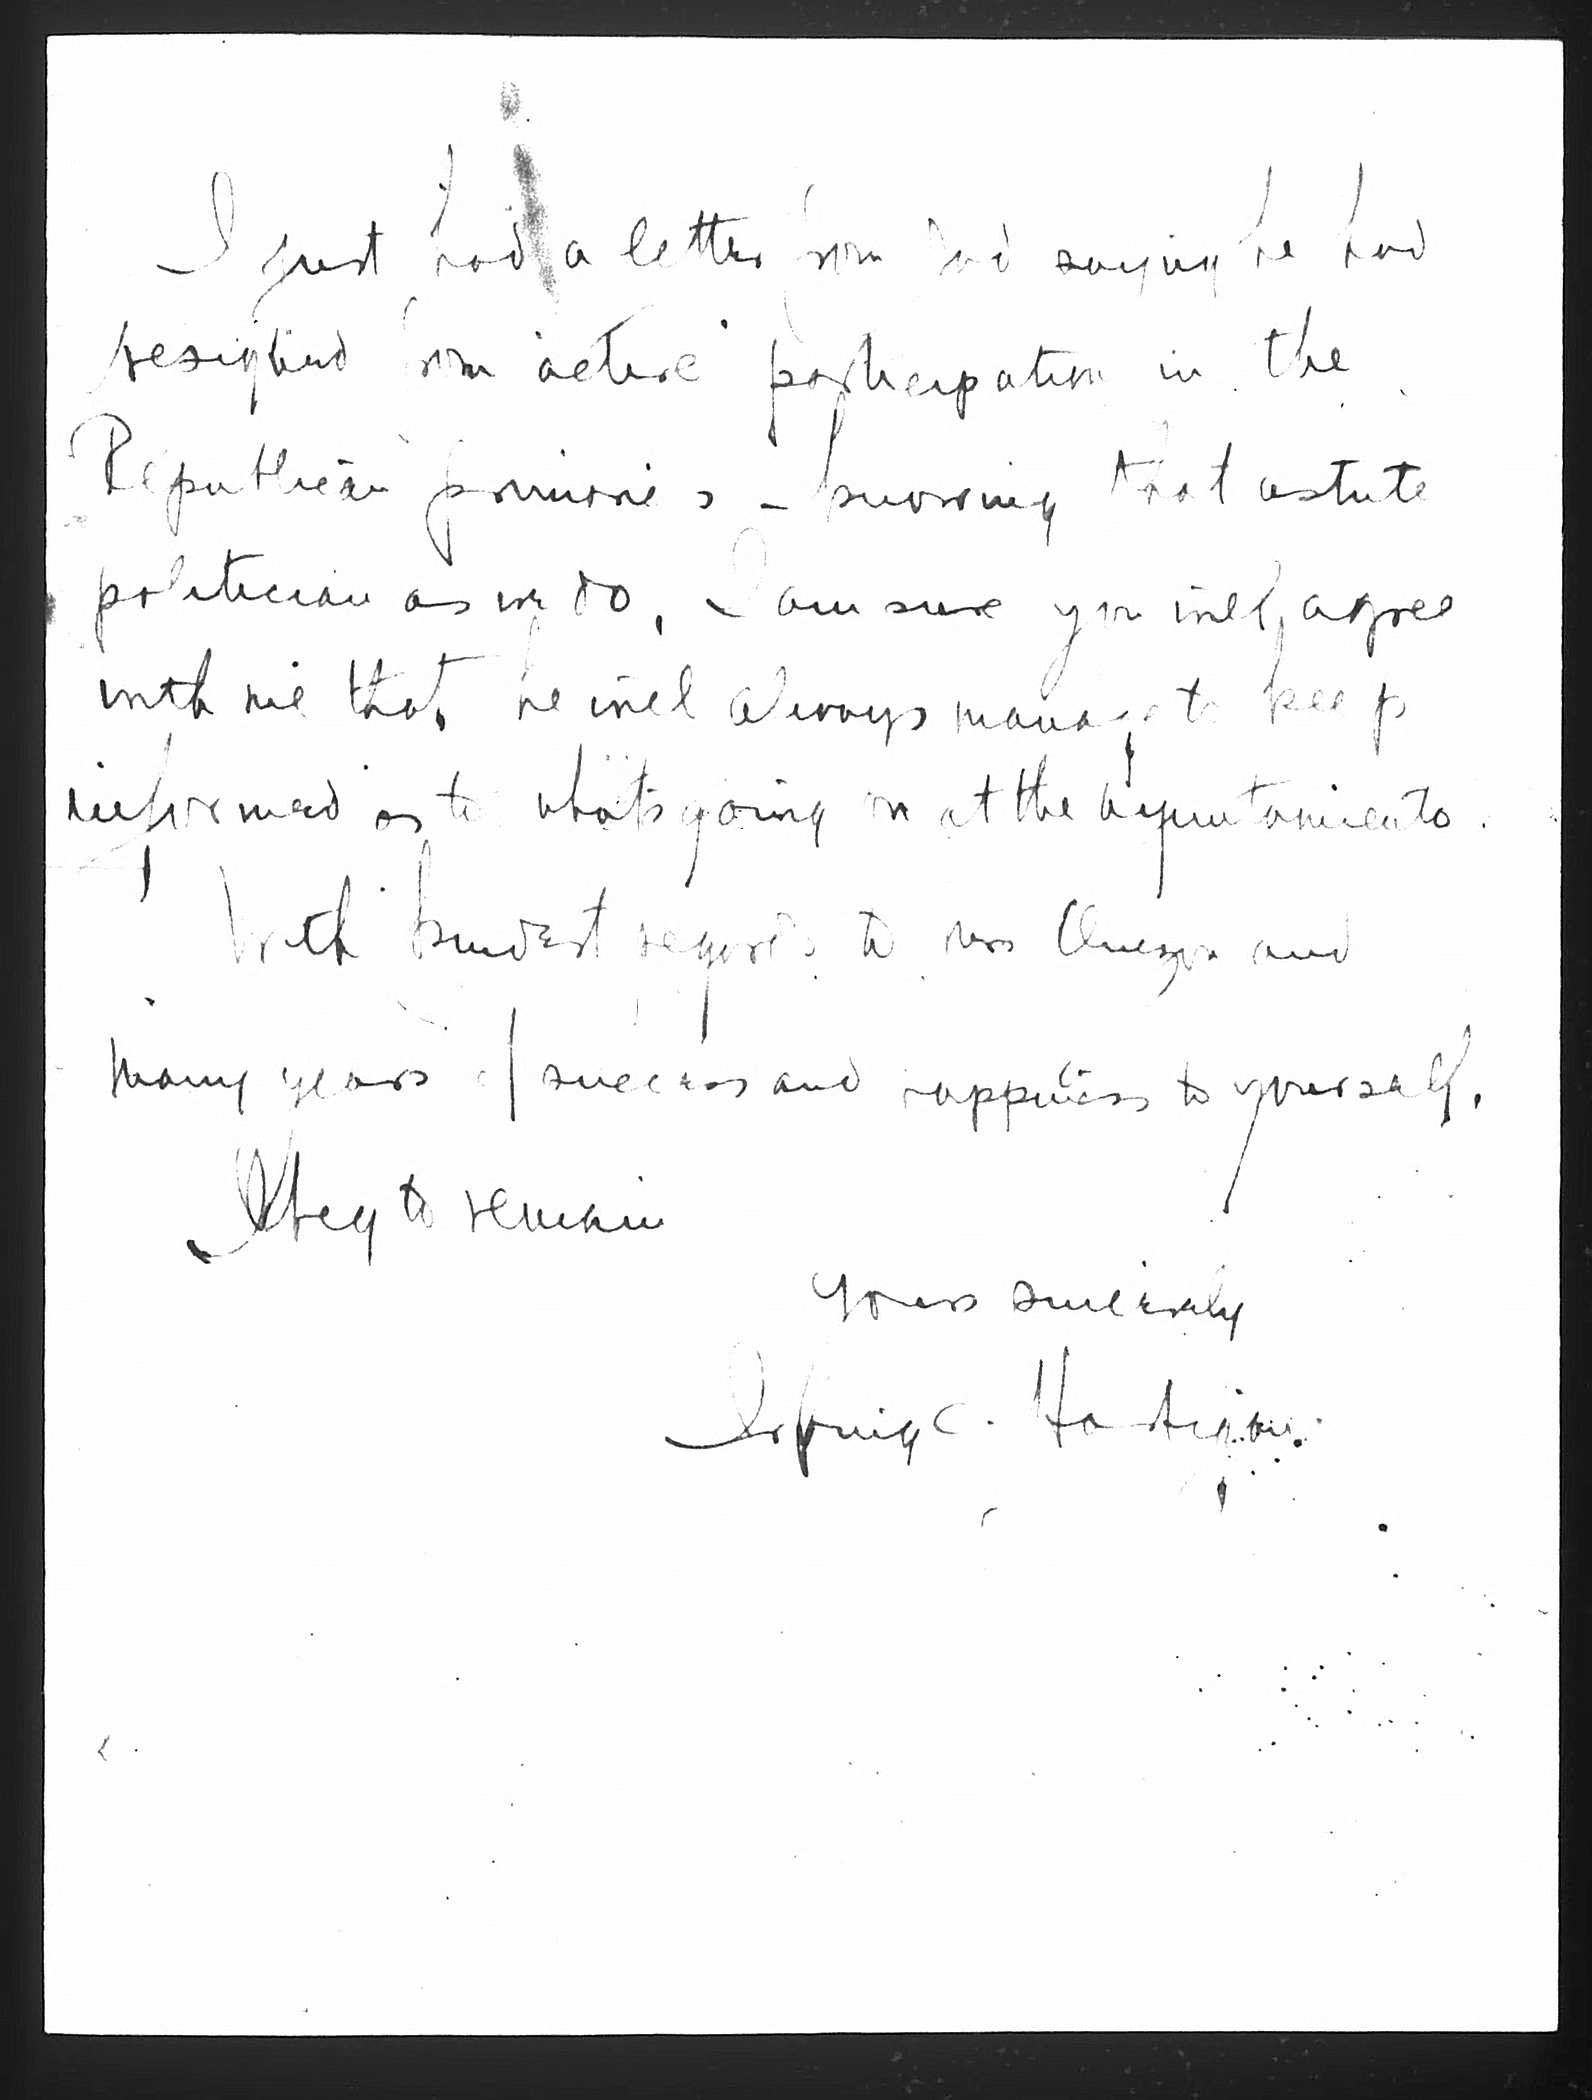 I just had a letter from Dad saying he had
resigned from "active" participation in the
Republican primaries - knowing that astute
politician as we do, I am sure you will agree
with me that he will always manage to keep
informed as to what's going on at the ayuntamiento.
With kindest regards to Mrs and
many years of success and happiness to yourself,
I beg to remain
Yours sincerely
Irving C. Hartigan